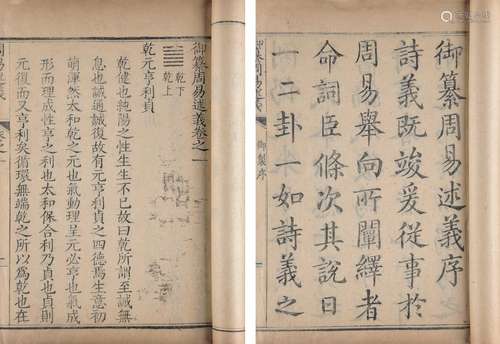 御纂周易述義序
詩義既竣爰從事於
周易舉向所闡繹者
命詞臣條次其說日
一二卦一如詩義之
御製序
御纂周易述義卷之一
乾下
乾上
乾元亨利貞
乾健也純陽之性生生不已故曰乾所謂至誠無
息也誠通誠復故有元亨利貞之四德焉生意初
萌渾然太和乾之元也氣動理呈元必亨也氣成
形而理成性亨必利也太和保合利乃貞也貞則
元復而又亨利矣循環無端乾之所以為乾也在